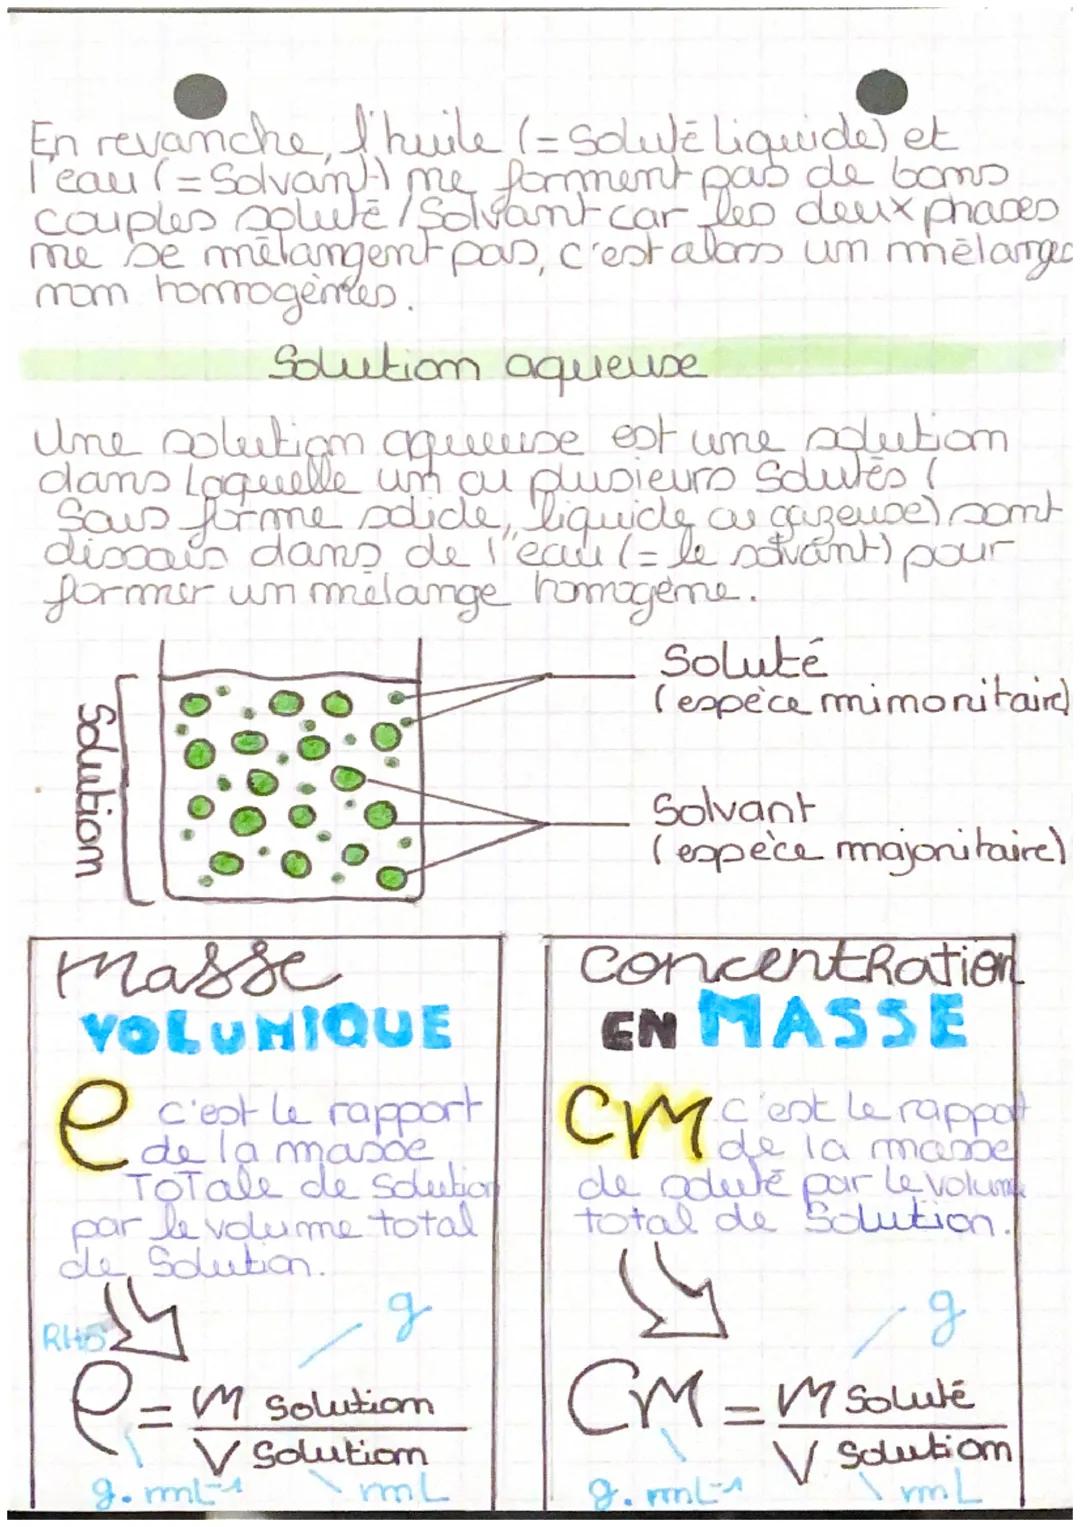 En revanche, l'huile (= Soluté liquide) et
l'eau (= Solvant) ne forment pas de bons
couples soluté / Solvant car les deux phases
ne se mélangent pas, c'est alors un mélange
non homogènes.
Solution aqueuse
Une solution aqueuse est une solution
dans laquelle un ou plusieurs Solutés (
Sous forme solide, liquide ou gazeuse) sont
dissous dans de l'eau (= le solvant) pour
former un mélange homogène.
Soluté
(espèce minoritaire)
Solution
Solvant
(espèce majoritaire)
Masse
VOLUMIQUE
ρ c'est le rapport
de la masse
TOTale de Solution
par le volume total
de Solution.
RHÔ
g
ρ = m Solution
V Solution
g.mL-1 mL
ConcentRation
EN MASSE
Cm c'est le rapport
de la masse
de soluté par le volume
total de Solution.
g
Cm = m Soluté
V Solution
g.mL-1 mL